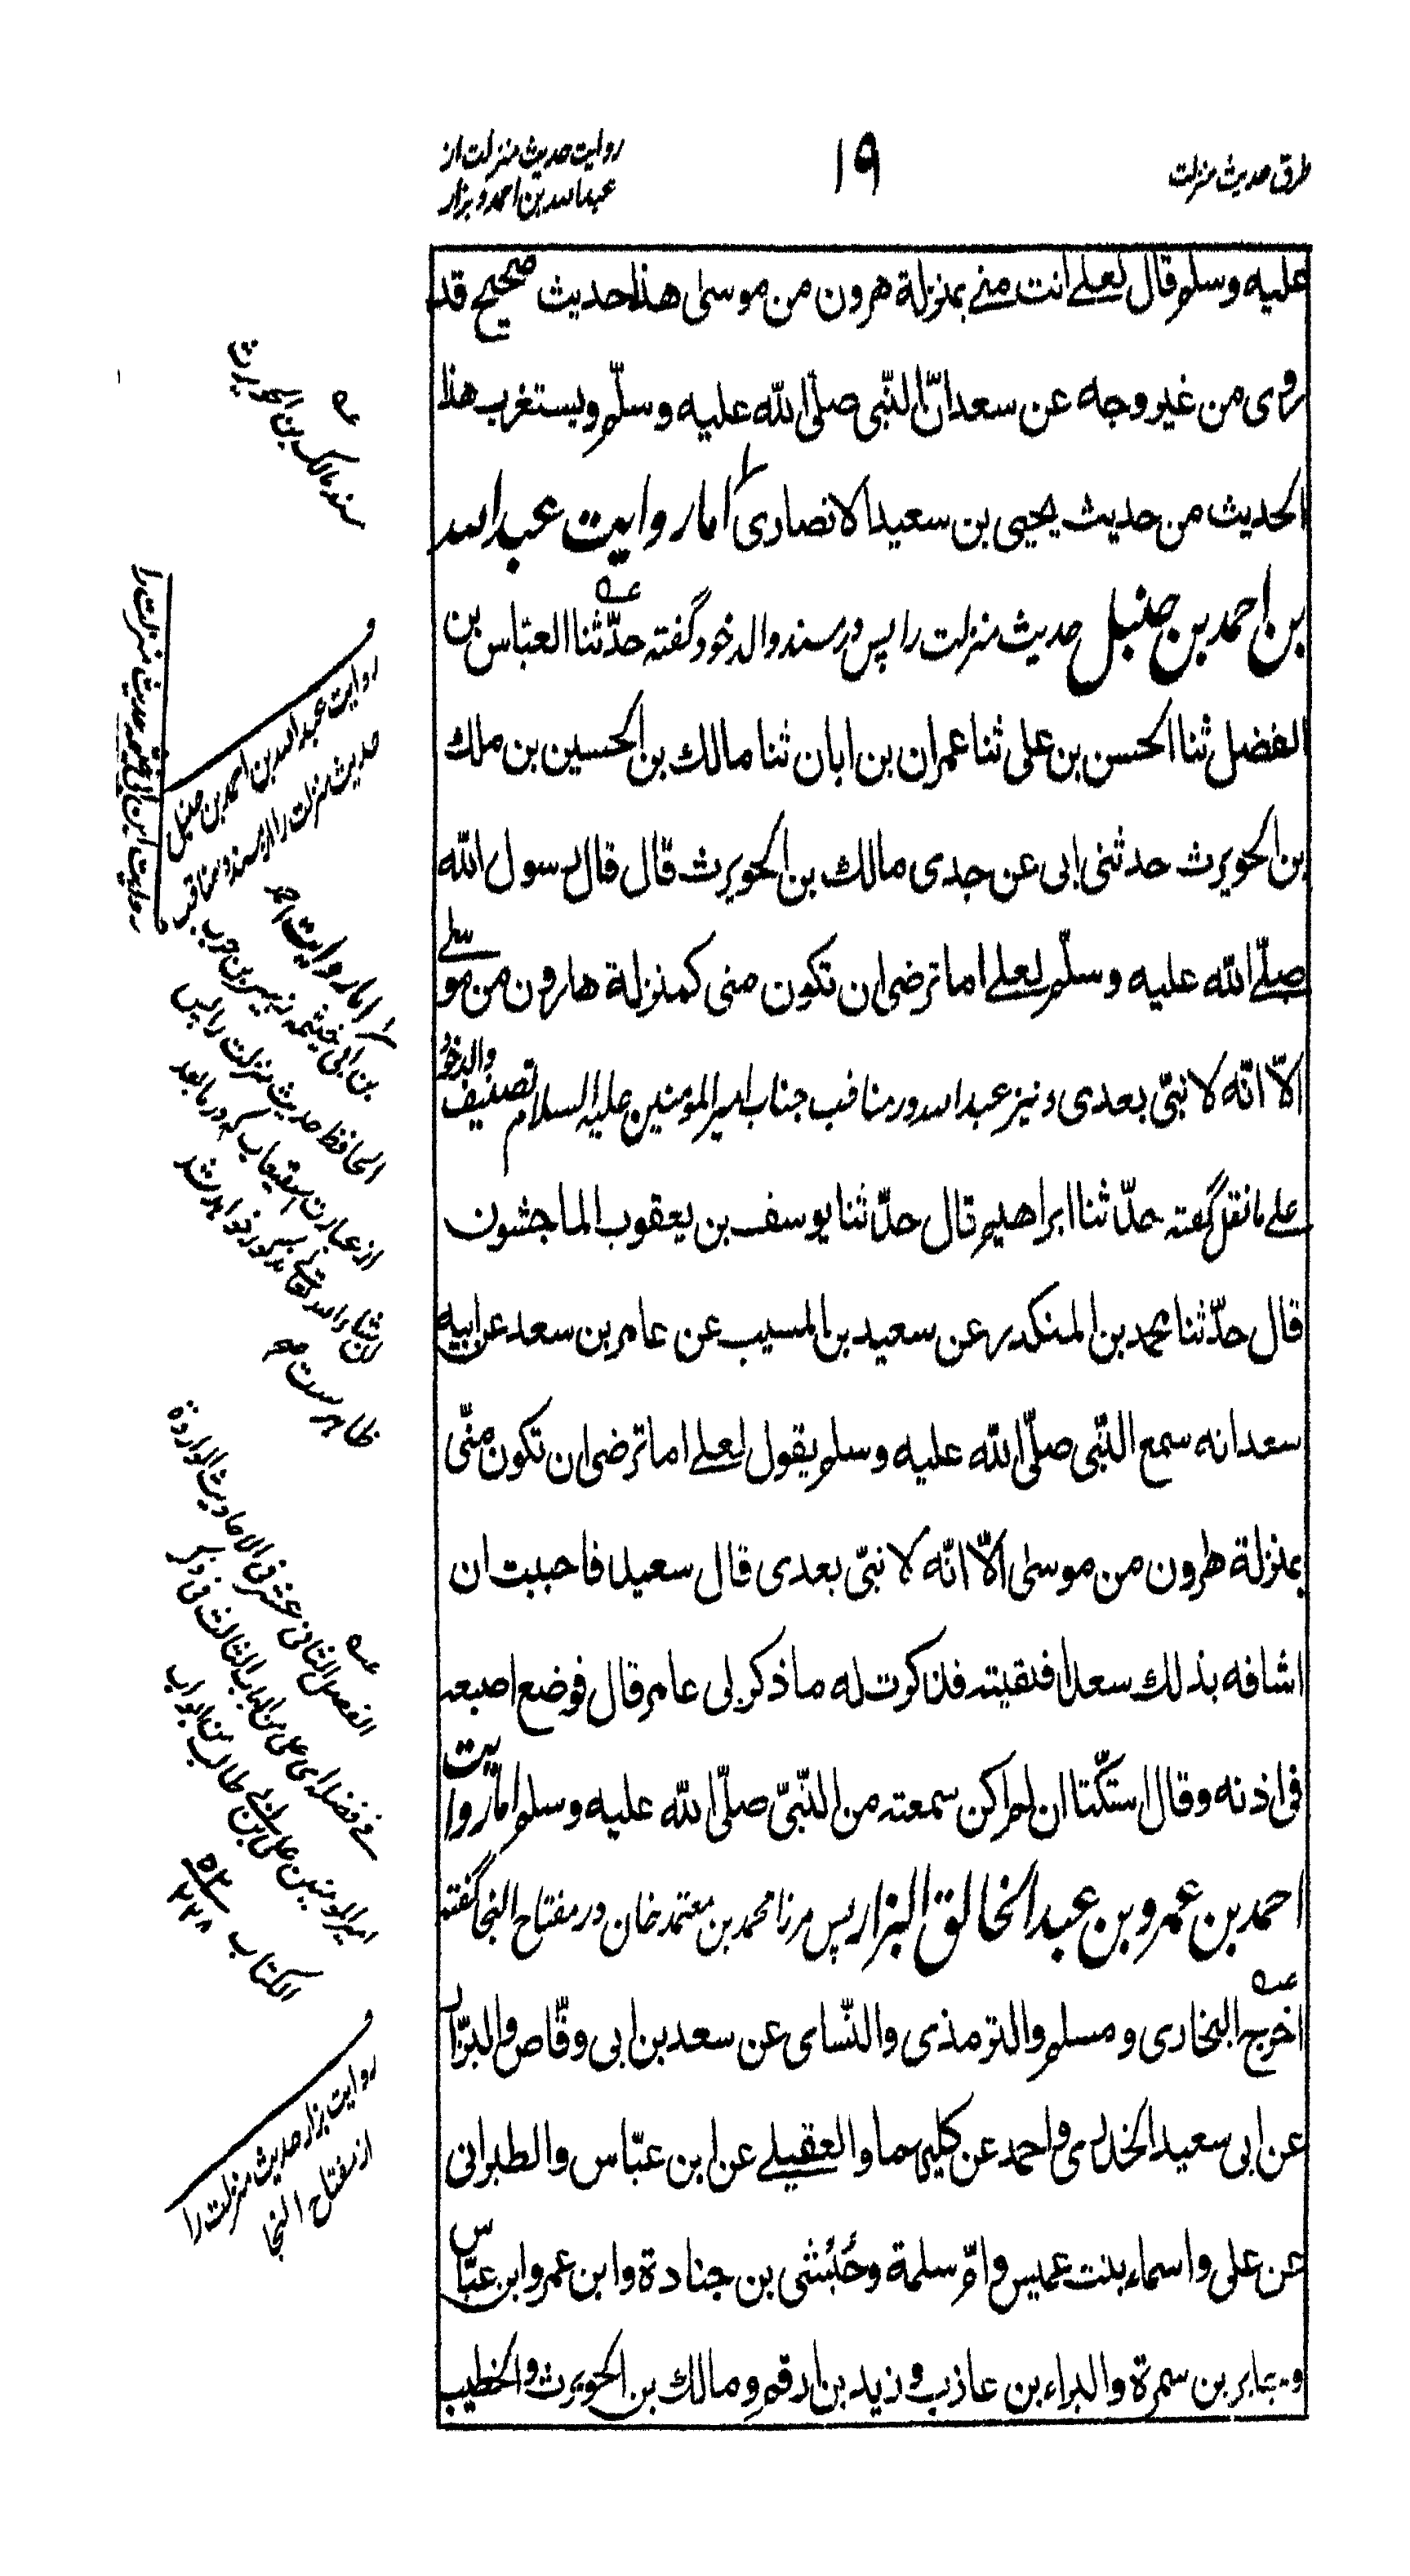 طرق حدیث منزلت
۱۹
روایت حدیث منزلت از
عبدالله بن احمد و بزار
علیه وسلم قال لعلے انت منے بمنزلة هرون من موسیٰ هذا حدیث صحیح قد
روی من غیر وجه عن سعد انّ النّبی صلّی الله علیه وسلّم ویستغرب هذا
الحدیث من حدیث یحیی بن سعید الانصاری اما روایت عبد الله
بن احمد بن حنبل حدیث منزلت را پس در مسند والد خود گفته حدّثنا العبّاس بن
الفضل ثنا الحسن بن علی ثنا عمران بن ابان ثنا مالك بن الحسین بن مالك
بن الحویرث حدثنی ابی عن جدی مالك بن الحویرث قال قال رسول الله
صلّے الله علیه وسلّم لعلے اما ترضی ان تکون منی کمنزلة هارون من موسلے
الّا انّه لا نبّی بعدی و نیز عبد الله در مناقب جناب امیر المومنین علیه السلام تصنیف والد خود
علے ما نقل گفته حدّثنا ابراهیم قال حدّثنا یوسف بن یعقوب الماجشون
قال حدّثنا محمد بن المنکدر عن سعید بن المسیب عن عامر بن سعد عن ابیه
سعد انه سمع النّبی صلّی الله علیه وسلم یقول لعلے اما ترضی ان تکون منّی
بمنزلة هرون من موسیٰ الّا انّه لا نبّی بعدی قال سعید فاحببت ان
اشافه بذلك سعدا فلقیته فذکرت له ما ذکر لی عامر قال فوضع اصبعه
فی اذنه وقال استکّتا ان لم اکن سمعته من النّبیّ صلّی الله علیه وسلم اما روایت
احمد بن عمرو بن عبد الخالق البزار پس مرزا محمد بن معتمد خان در مفتاح النجا گفته
اخرج البخاری و مسلم والترمذی والنّسای عن سعد بن ابی وقّاص والبزّار
عن ابی سعید الخدری واحمد عن کلیهما والعقیلے عن ابن عبّاس والطبرانی
عن علی واسماء بنت عمیس وامّ سلمة وحُبْشی بن جنادة وابن عمر وابن عبّاس
وجابر بن سمرة والبراء بن عاذب وزید بن ارقم ومالك بن الحویرث والخطیب
مسند مالک بن الحویرث
روایت عبد الله بن احمد بن حنبل
حدیث منزلت را از مسند و مناقب
اما روایت احمد
بن ابی خیثمه زهیر بن حرب
الحافظ حدیث منزلت را پس
از عبارت استیعاب که در ما بعد
انشاء الله تعالی مذکور خواهد شد
ظاهر ست
روایت ابن ابی خیثمه حدیث منزلت را
الفصل الثانی عشر فی الاحادیث الواردة
فے فضله ای علی من الباب الثالث فی ذکر
امیر المومنین علی بن ابی طالب من ابواب
الکتاب ۵۳
۲۲۸
روایت بزار حدیث منزلت را
از مفتاح النجا